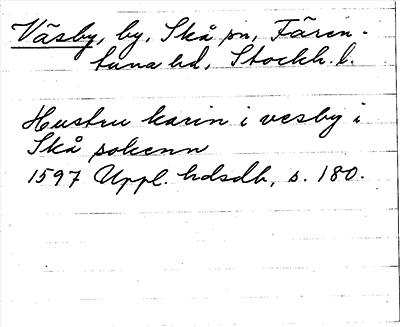 Väsby, by, Skå sn, Fären-
tuna hd, Stockh. l.
Hustru karin i vesby i
Skå sokenn
1597 Uppl. hdsdb, s. 180.